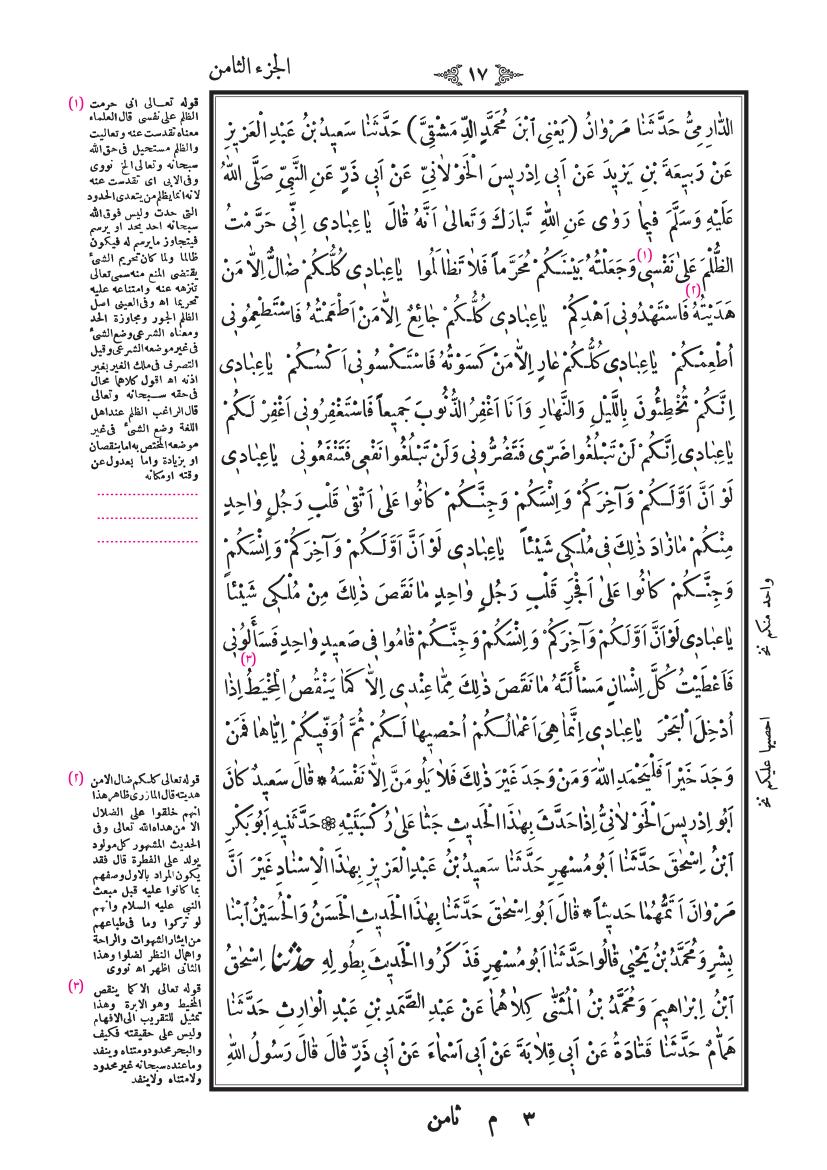 الجزء الثامن
١٧
الدَّارِمِىُّ حَدَّثَنَا مَرْوَانُ (يَعْنِى ابْنَ مُحَمَّدٍ الدِّمَشْقِىَّ) حَدَّثَنَا سَعِيدُ بْنُ عَبْدِ الْعَزِيزِ
عَنْ رَبِيعَةَ بْنِ يَزِيدَ عَنْ اَبِى اِدْرِيسَ الْخَوْلَانِىِّ عَنْ اَبِى ذَرٍّ عَنِ النَّبِىِّ صَلَّى اللهُ
عَلَيْهِ وَسَلَّمَ فِيمَا رَوَى عَنِ اللهِ تَبَارَكَ وَتَعَالَى اَنَّهُ قَالَ يَا عِبَادِى اِنِّى حَرَّمْتُ
الظُّلْمَ عَلَى نَفْسِى (١) وَجَعَلْتُهُ بَيْنَكُمْ مُحَرَّماً فَلَا تَظَالَمُوا يَا عِبَادِى كُلُّكُمْ ضَالٌّ اِلَّا مَنْ
هَدَيْتُهُ (٢) فَاسْتَهْدُونِى اَهْدِكُمْ يَا عِبَادِى كُلُّكُمْ جَائِعٌ اِلَّا مَنْ اَطْعَمْتُهُ فَاسْتَطْعِمُونِى
اُطْعِمْكُمْ يَا عِبَادِى كُلُّكُمْ عَارٍ اِلَّا مَنْ كَسَوْتُهُ فَاسْتَكْسُونِى اَكْسُكُمْ يَا عِبَادِى
اِنَّكُمْ تُخْطِئُونَ بِاللَّيْلِ وَالنَّهَارِ وَاَنَا اَغْفِرُ الذُّنُوبَ جَمِيعاً فَاسْتَغْفِرُونِى اَغْفِرْ لَكُمْ
يَا عِبَادِى اِنَّكُمْ لَنْ تَبْلُغُوا ضَرِّى فَتَضُرُّونِى وَلَنْ تَبْلُغُوا نَفْعِى فَتَنْفَعُونِى يَا عِبَادِى
لَوْ اَنَّ اَوَّلَكُمْ وَآخِرَكُمْ وَاِنْسَكُمْ وَجِنَّكُمْ كَانُوا عَلَى اَتْقَى قَلْبِ رَجُلٍ وَاحِدٍ
مِنْكُمْ مَا زَادَ ذَلِكَ فِى مُلْكِى شَيْئاً يَا عِبَادِى لَوْ اَنَّ اَوَّلَكُمْ وَآخِرَكُمْ وَاِنْسَكُمْ
وَجِنَّكُمْ كَانُوا عَلَى اَفْجَرِ قَلْبِ رَجُلٍ وَاحِدٍ مَا نَقَصَ ذَلِكَ مِنْ مُلْكِى شَيْئاً
يَا عِبَادِى لَوْ اَنَّ اَوَّلَكُمْ وَآخِرَكُمْ وَاِنْسَكُمْ وَجِنَّكُمْ قَامُوا فِى صَعِيدٍ وَاحِدٍ فَسَأَلُونِى
فَاَعْطَيْتُ كُلَّ اِنْسَانٍ مَسْأَلَتَهُ مَا نَقَصَ ذَلِكَ مِمَّا عِنْدِى اِلَّا كَمَا يَنْقُصُ (٣) الْمِخْيَطُ اِذَا
اُدْخِلَ الْبَحْرَ يَا عِبَادِى اِنَّمَا هِىَ اَعْمَالُكُمْ اُحْصِيهَا لَكُمْ ثُمَّ اُوَفِّيكُمْ اِيَّاهَا فَمَنْ
وَجَدَ خَيْراً فَلْيَحْمَدِ اللهَ وَمَنْ وَجَدَ غَيْرَ ذَلِكَ فَلَا يَلُومَنَّ اِلَّا نَفْسَهُ * قَالَ سَعِيدٌ كَانَ
اَبُو اِدْرِيسَ الْخَوْلَانِىُّ اِذَا حَدَّثَ بِهَذَا الْحَدِيثِ جَثَا عَلَى رُكْبَتَيْهِ ❀ حَدَّثَنِيهِ اَبُو بَكْرِ
ابْنُ اِسْحٰقَ حَدَّثَنَا اَبُو مُسْهِرٍ حَدَّثَنَا سَعِيدُ بْنُ عَبْدِ الْعَزِيزِ بِهَذَا الْاِسْنَادِ غَيْرَ اَنَّ
مَرْوَانَ اَتَمُّهُمَا حَدِيثاً * قَالَ اَبُو اِسْحٰقَ حَدَّثَنَا بِهَذَا الْحَدِيثِ الْحَسَنُ وَالْحُسَيْنُ ابْنَا
بِشْرٍ وَمُحَمَّدُ بْنُ يَحْيَى قَالُوا حَدَّثَنَا اَبُو مُسْهِرٍ فَذَكَرُوا الْحَدِيثَ بِطُولِهِ حَدَّثَنَا اِسْحٰقُ
ابْنُ اِبْرَاهِيمَ وَمُحَمَّدُ بْنُ الْمُثَنَّى كِلَاهُمَا عَنْ عَبْدِ الصَّمَدِ بْنِ عَبْدِ الْوَارِثِ حَدَّثَنَا
هَمَّامٌ حَدَّثَنَا قَتَادَةُ عَنْ اَبِى قِلَابَةَ عَنْ اَبِى اَسْمَاءَ عَنْ اَبِى ذَرٍّ قَالَ قَالَ رَسُولُ اللهِ
واحد منكم نخ
احصيها عليكم نخ
(١) قوله تعالى انى حرمت
الظلم على نفسى قال العلماء
معناه تقدست عنه وتعاليت
والظلم مستحيل فى حق الله
سبحانه وتعالى الخ نووى
وفى الابى اى تقدست عنه
لانه انما يظلم من يتعدى الحدود
التى حدت وليس فوق الله
سبحانه احد يحد او يرسم
فيتجاوز ما يرسم له فيكون
ظالما ولما كان تحريم الشئ
يقتضى المنع منه سمى تعالى
تنزهه عنه وامتناعه عليه
تحريما اه وفى العينى اصل
الظلم الجور ومجاوزة الحد
ومعناه الشرعى وضع الشئ
فى غير موضعه الشرعى وقيل
التصرف فى ملك الغير بغير
اذنه اه اقول كلاهما محال
فى حقه سبحانه وتعالى
قال الراغب الظلم عند اهل
اللغة وضع الشئ فى غير
موضعه المختص به اما بنقصان
او بزيادة واما بعدول عن
وقته او مكانه
(٢) قوله تعالى كلكم ضال الا من
هديته قال المازرى ظاهر هذا
انهم خلقوا على الضلال
الا من هداه الله تعالى وفى
الحديث المشهور كل مولود
يولد على الفطرة قال فقد
يكون المراد بالاول وصفهم
بما كانوا عليه قبل مبعث
النبى عليه السلام وانهم
لو تركوا وما فى طباعهم
من ايثار الشهوات والراحة
واهمال النظر لضلوا وهذا
الثانى اظهر اه نووى
(٣) قوله تعالى الا كما ينقص
المخيط وهو الابرة وهذا
تمثيل للتقريب الى الافهام
وليس على حقيقته فكيف
والبحر محدود ومتناه وينفد
وما عنده سبحانه غير محدود
ولا متناه ولا ينفد
٣ م ثامن